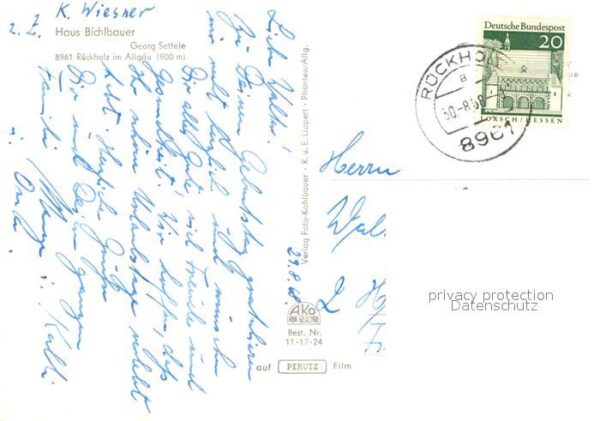 K. Wiesner
z. Z.
Haus Bichlbauer
Georg Settele
8961 Rückholz im Allgäu (900 m)
Lieber Walter!
Zu Deinem Geburtstag gratulieren
wir recht herzlich und wünschen
Dir alles Gute, viel Freude und
Gesundheit. Wir hoffen, daß
Ihr schöne Urlaubstage verlebt
habt. Herzliche Grüße
Dir und Deiner ganzen
Familie
Onkel
Verlag Foto-Kohlbauer - R. u. E. Lippert - Pfronten/Allg.
29.8.68
AKO
Best. Nr.
11-17-24
auf PERUTZ Film
Deutsche Bundespost
20
LORSCH/HESSEN
RÜCKHO
a
30.-8.68
8961
Herrn
Wal
privacy protection
Datenschutz